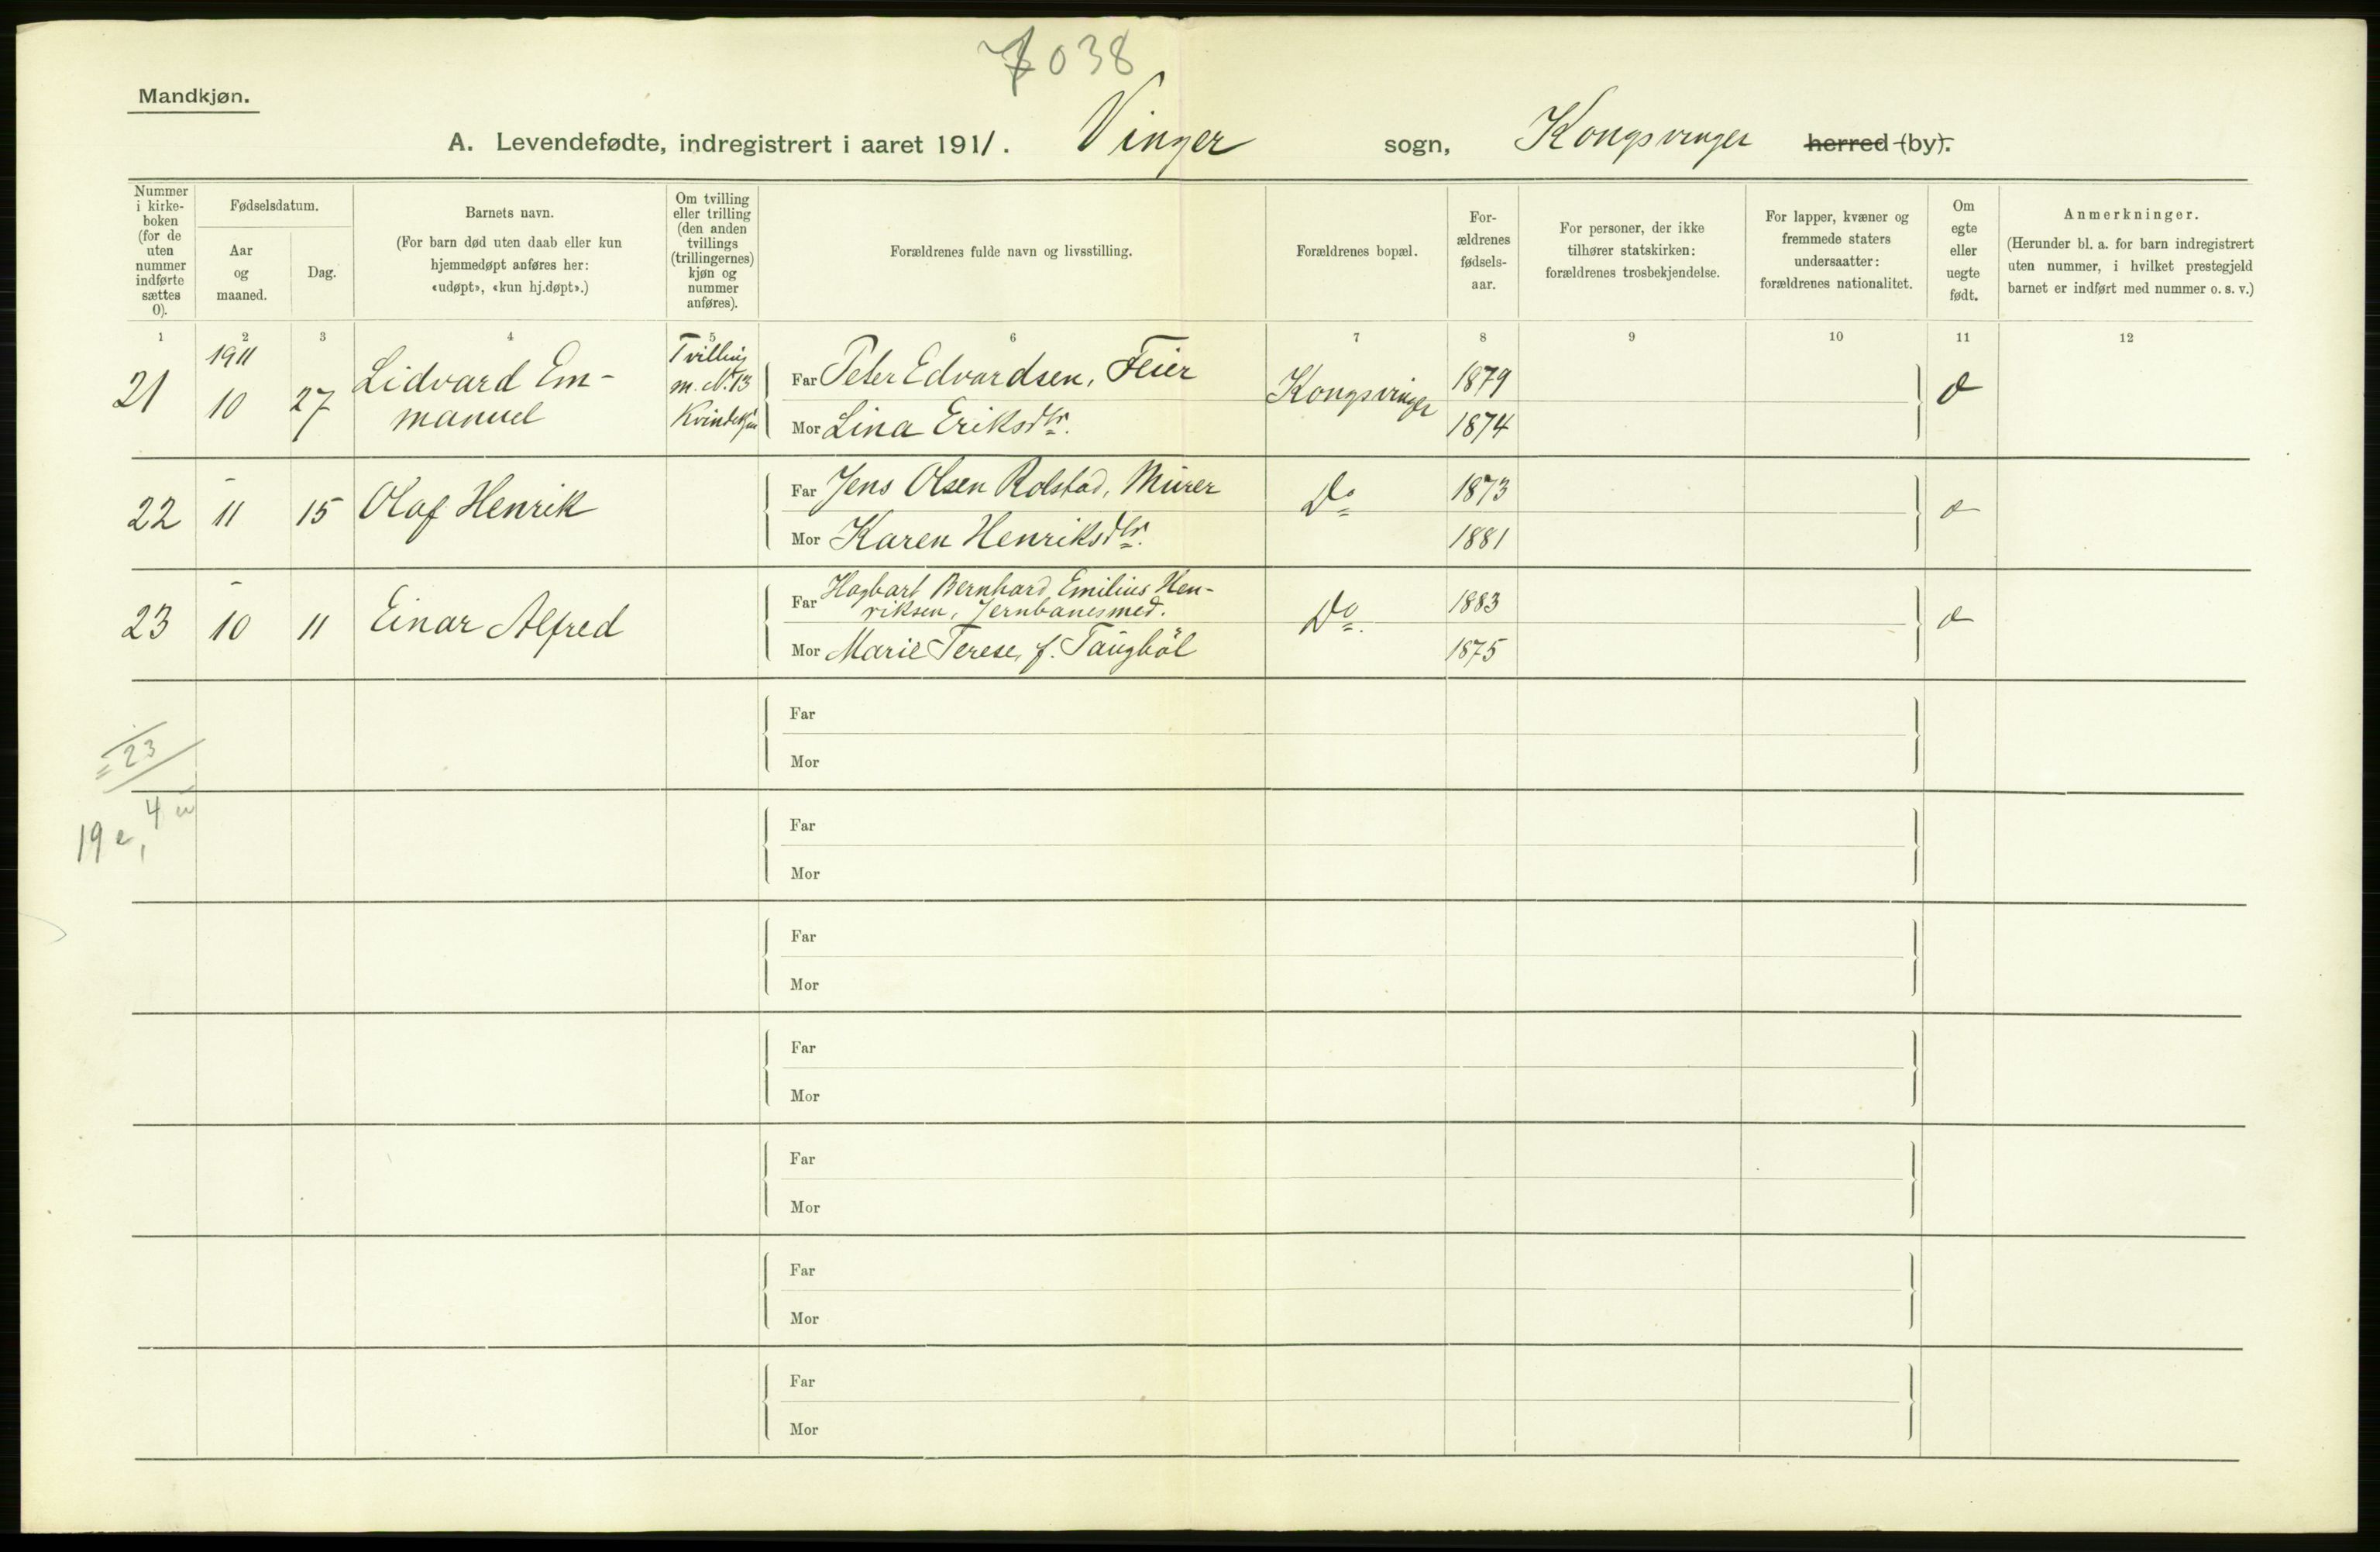 7038
Mandkjøn.
A. Levendefødte, indregistrert i aaret 1911. Vinger sogn, Kongsvinger herred (by).
Nummer i kirke- boken (for de uten nummer indførte sættes 0).
Fødselsdatum.
Aar og maaned.
Dag.
Barnets navn.
(For barn død uten daab eller kun hjemmedøpt anføres her: «udøpt», «kun hj.døpt».)
Om tvilling eller trilling (den anden tvillings (trillingernes) kjøn og nummer anføres).
Forældrenes fulde navn og livsstilling.
Forældrenes bopæl.
For- ældrenes fødsels- aar.
For personer, der ikke tilhører statskirken: forældrenes trosbekjendelse.
For lapper, kvæner og fremmede staters undersaatter: forældrenes nationalitet.
Om egte eller uegte født.
Anmerkninger.
(Herunder bl. a. for barn indregistrert uten nummer, i hvilket prestegjeld barnet er indført med nummer o. s. v.)
1 2 3 4 5 6 7 8 9 10 11 12
21 1911 10 27 Lidvard Em-
manuel
Tvilling
m. N. 13
Kvindekjøn
Far Peter Edvardsen, Feier Kongsvinger 1879
Mor Lina Eriksdtr. 1874
22 - 11 15 Olaf Henrik
Far Jens Olsen Rolstad, Murer Do 1873
Mor Karen Henriksdtr. 1881
23 - 10 11 Einar Alfred
Far Hagbart Bernhard Emilius Hen-
riksen, Jernbanesmed. Do. 1883
Mor Marie Terese, f. Taugbøl 1875
= 23
19 e, 4 u
Far
Mor
Far
Mor
Far
Mor
Far
Mor
Far
Mor
Far
Mor
Far
Mor